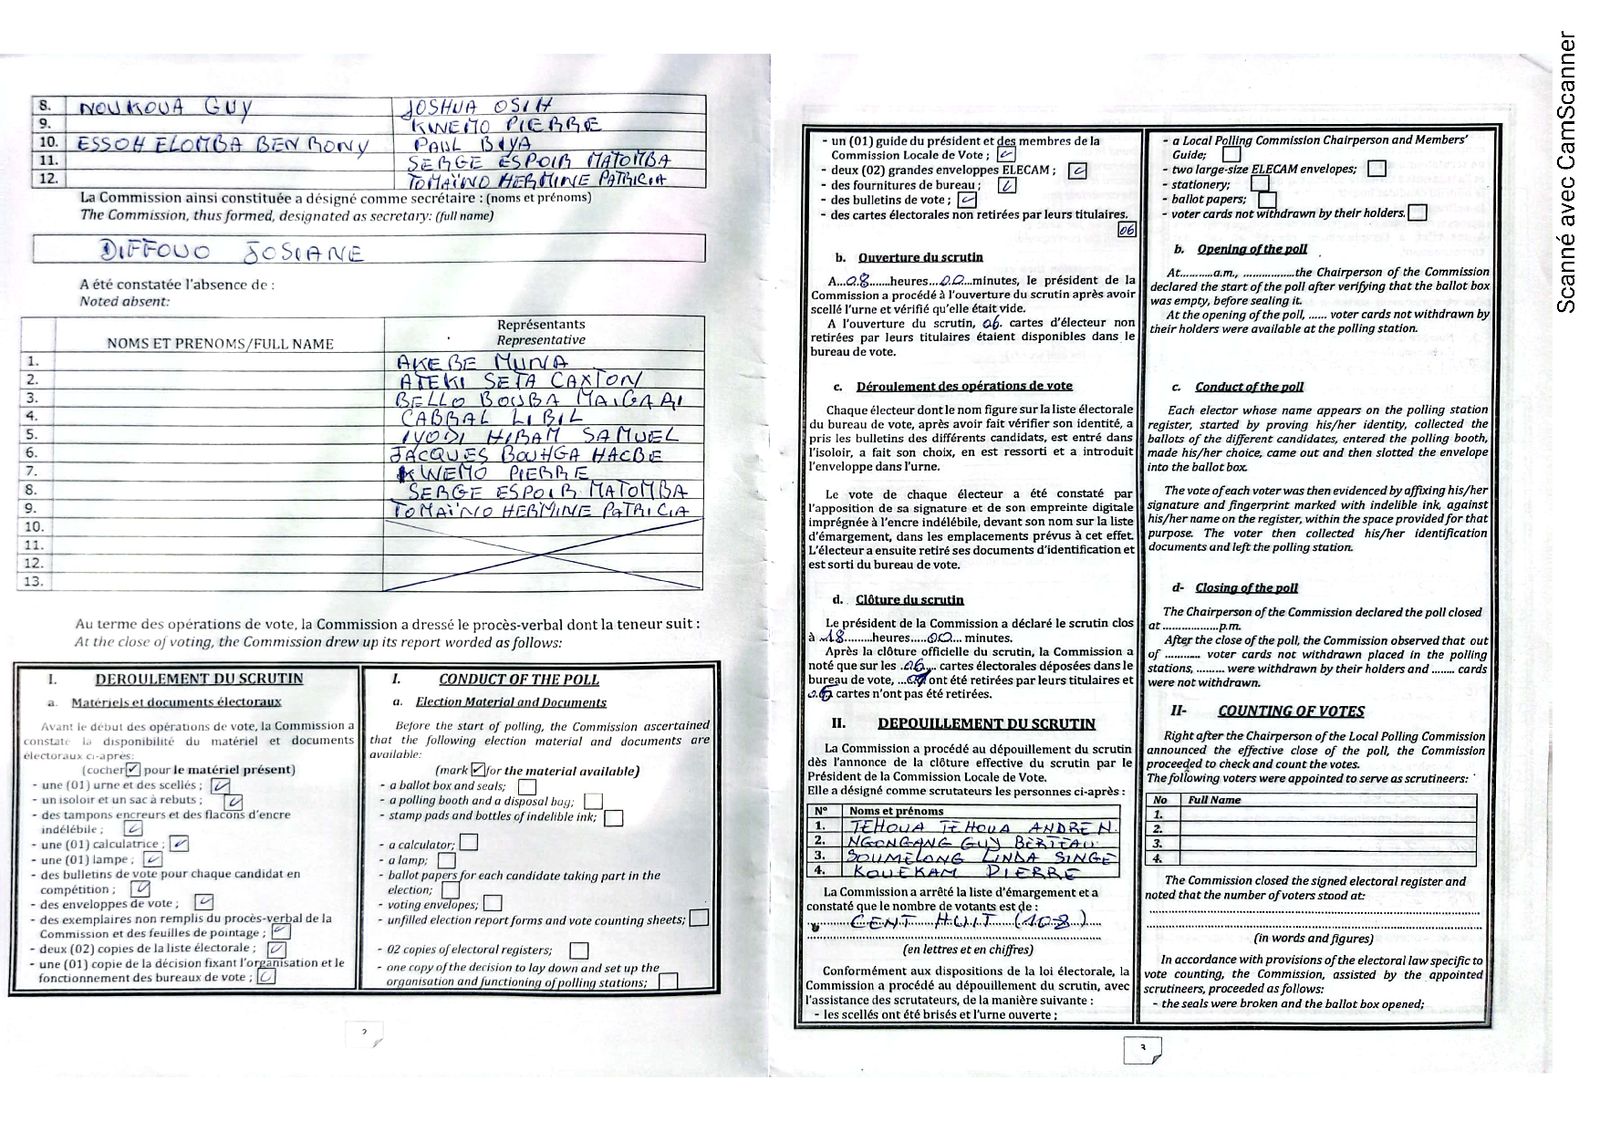 8. NOUKOUA GUY JOSHUA OSIH
9. KWEMO PIERRE
10. ESSOH ELOMBA BEN RONY PAUL BIYA
11. SERGE ESPOIR MATOMBA
12. TOMAÏNO HERMINE PATRICIA
La Commission ainsi constituée a désigné comme secrétaire : (noms et prénoms)
The Commission, thus formed, designated as secretary: (full name)
DIFFOUO JOSIANE
A été constatée l'absence de :
Noted absent:
NOMS ET PRENOMS/FULL NAME
Représentants
Representative
1. AKERE MUNA
2. ATEKI SETA CAXTON
3. BELLO BOUBA MAIGARI
4. CABRAL LIBII
5. IYODI HIRAM SAMUEL
6. JACQUES BOUHGA HAGBE
7. KWEMO PIERRE
8. SERGE ESPOIR MATOMBA
9. TOMAÏNO HERMINE PATRICIA
10.
11.
12.
13.
Au terme des opérations de vote, la Commission a dressé le procès-verbal dont la teneur suit :
At the close of voting, the Commission drew up its report worded as follows:
I. DEROULEMENT DU SCRUTIN
a. Matériels et documents électoraux
Avant le début des opérations de vote, la Commission a
constaté la disponibilité du matériel et documents
électoraux ci-après:
(cocher ✓ pour le matériel présent)
- une (01) urne et des scellés ;
- un isoloir et un sac à rebuts ;
- des tampons encreurs et des flacons d'encre
indélébile ;
- une (01) calculatrice ;
- une (01) lampe ;
- des bulletins de vote pour chaque candidat en
compétition ;
- des enveloppes de vote ;
- des exemplaires non remplis du procès-verbal de la
Commission et des feuilles de pointage ;
- deux (02) copies de la liste électorale ;
- une (01) copie de la décision fixant l'organisation et le
fonctionnement des bureaux de vote ;
I. CONDUCT OF THE POLL
a. Election Material and Documents
Before the start of polling, the Commission ascertained
that the following election material and documents are
available:
(mark ✓ for the material available)
- a ballot box and seals;
- a polling booth and a disposal bag;
- stamp pads and bottles of indelible ink;
- a calculator;
- a lamp;
- ballot papers for each candidate taking part in the
election;
- voting envelopes;
- unfilled election report forms and vote counting sheets;
- 02 copies of electoral registers;
- one copy of the decision to lay down and set up the
organisation and functioning of polling stations;
2
- un (01) guide du président et des membres de la
Commission Locale de Vote ;
- deux (02) grandes enveloppes ELECAM ;
- des fournitures de bureau ;
- des bulletins de vote ;
- des cartes électorales non retirées par leurs titulaires.
06
b. Ouverture du scrutin
A...08......heures...00...minutes, le président de la
Commission a procédé à l'ouverture du scrutin après avoir
scellé l'urne et vérifié qu'elle était vide.
A l'ouverture du scrutin, 06. cartes d'électeur non
retirées par leurs titulaires étaient disponibles dans le
bureau de vote.
c. Déroulement des opérations de vote
Chaque électeur dont le nom figure sur la liste électorale
du bureau de vote, après avoir fait vérifier son identité, a
pris les bulletins des différents candidats, est entré dans
l'isoloir, a fait son choix, en est ressorti et a introduit
l'enveloppe dans l'urne.
Le vote de chaque électeur a été constaté par
l'apposition de sa signature et de son empreinte digitale
imprégnée à l'encre indélébile, devant son nom sur la liste
d'émargement, dans les emplacements prévus à cet effet.
L'électeur a ensuite retiré ses documents d'identification et
est sorti du bureau de vote.
d. Clôture du scrutin
Le président de la Commission a déclaré le scrutin clos
à 18.........heures.....00.... minutes.
Après la clôture officielle du scrutin, la Commission a
noté que sur les .06.... cartes électorales déposées dans le
bureau de vote, ... ont été retirées par leurs titulaires et
cartes n'ont pas été retirées.
II. DEPOUILLEMENT DU SCRUTIN
La Commission a procédé au dépouillement du scrutin
dès l'annonce de la clôture effective du scrutin par le
Président de la Commission Locale de Vote.
Elle a désigné comme scrutateurs les personnes ci-après :
N° Noms et prénoms
1. TEHOUA TEHOUA ANDRE N.
2. NGONGANG GUY BERTEAU
3. SOUMELONG LINDA SINGE
4. KOUEKAM PIERRE
La Commission a arrêté la liste d'émargement et a
constaté que le nombre de votants est de :
CENT HUIT (108)
(en lettres et en chiffres)
Conformément aux dispositions de la loi électorale, la
Commission a procédé au dépouillement du scrutin, avec
l'assistance des scrutateurs, de la manière suivante :
- les scellés ont été brisés et l'urne ouverte ;
- a Local Polling Commission Chairperson and Members'
Guide;
- two large-size ELECAM envelopes;
- stationery;
- ballot papers;
- voter cards not withdrawn by their holders.
b. Opening of the poll
At..........a.m., ................the Chairperson of the Commission
declared the start of the poll after verifying that the ballot box
was empty, before sealing it.
At the opening of the poll, ...... voter cards not withdrawn by
their holders were available at the polling station.
c. Conduct of the poll
Each elector whose name appears on the polling station
register, started by proving his/her identity, collected the
ballots of the different candidates, entered the polling booth,
made his/her choice, came out and then slotted the envelope
into the ballot box.
The vote of each voter was then evidenced by affixing his/her
signature and fingerprint marked with indelible ink, against
his/her name on the register, within the space provided for that
purpose. The voter then collected his/her identification
documents and left the polling station.
d- Closing of the poll
The Chairperson of the Commission declared the poll closed
at ................p.m.
After the close of the poll, the Commission observed that out
of ........... voter cards not withdrawn placed in the polling
stations, ......... were withdrawn by their holders and ........ cards
were not withdrawn.
II- COUNTING OF VOTES
Right after the Chairperson of the Local Polling Commission
announced the effective close of the poll, the Commission
proceeded to check and count the votes.
The following voters were appointed to serve as scrutineers:
No Full Name
1.
2.
3.
4.
The Commission closed the signed electoral register and
noted that the number of voters stood at:
(in words and figures)
In accordance with provisions of the electoral law specific to
vote counting, the Commission, assisted by the appointed
scrutineers, proceeded as follows:
- the seals were broken and the ballot box opened;
3
Scanné avec CamScanner